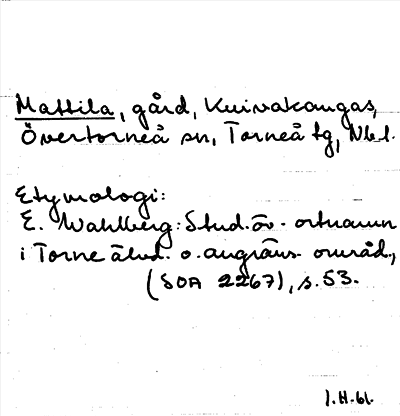 Mattila, gård, Kuivakangas,
Övertorneå sn, Torneå tg, Nbl.
Etymologi:
E. Wahlberg: Stud. öv. ortnamn
i Torne älvd. o. angräns. områd.,
(SOA 2267), s. 53.
I.H.61.